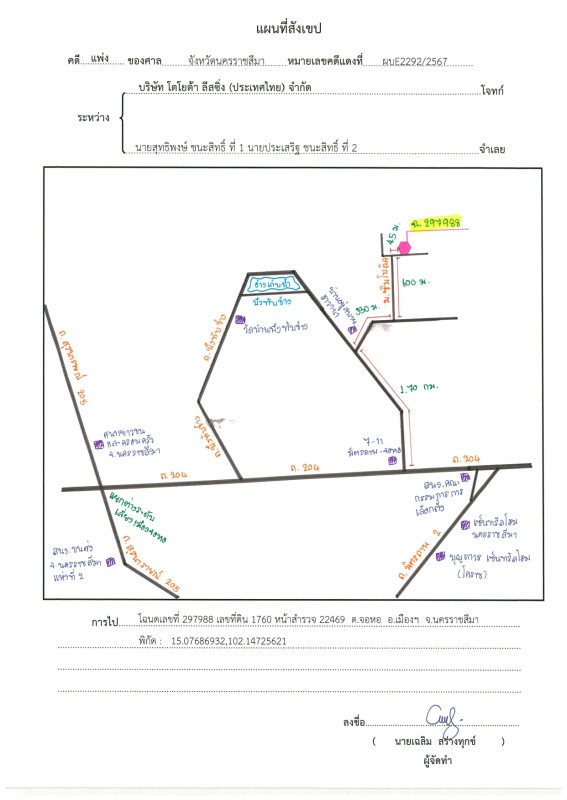 แผนที่สังเขป
คดี แพ่ง ของศาล จังหวัดนครราชสีมา หมายเลขคดีแดงที่ ผบE2292/2567
บริษัท โตโยต้า ลีสซิ่ง (ประเทศไทย) จำกัด โจทก์
ระหว่าง
นายสุทธิพงษ์ ชนะสิทธิ์ ที่ 1 นายประเสริฐ ชนะสิทธิ์ ที่ 2 จำเลย
ฉ. 297988
45 ม.
600 ม.
350 ม.
อ่างเก็บน้ำ
บึงทับช้าง
ถ. บึงทับช้าง
วัดบ้านบึงทับช้าง
ถ. สุรนารายณ์ 205
1.70 กม.
ศาลเยาวชน
และครอบครัว
จ.นครราชสีมา
7-11
มิตรภาพ-จอหอ
ถ. 204
ถ. 204
ถ. 204
แยกต่างระดับ
สนง.คณะ
กรรมการการ
เลือกตั้ง
เซ็นทรัลโฮม
นครราชสีมา
บุญถาวร เซ็นทรัลโฮม
(โคราช)
ถ. มิตรภาพ 2
สนง.ขนส่ง
จ.นครราชสีมา
แห่งที่ 2
ถ. สุรนารายณ์ 205
การไป โฉนดเลขที่ 297988 เลขที่ดิน 1760 หน้าสำรวจ 22469 ต.จอหอ อ.เมืองฯ จ.นครราชสีมา
พิกัด : 15.07686932,102.14725621
ลงชื่อ
( นายเฉลิม สร้างทุกข์ )
ผู้จัดทำ